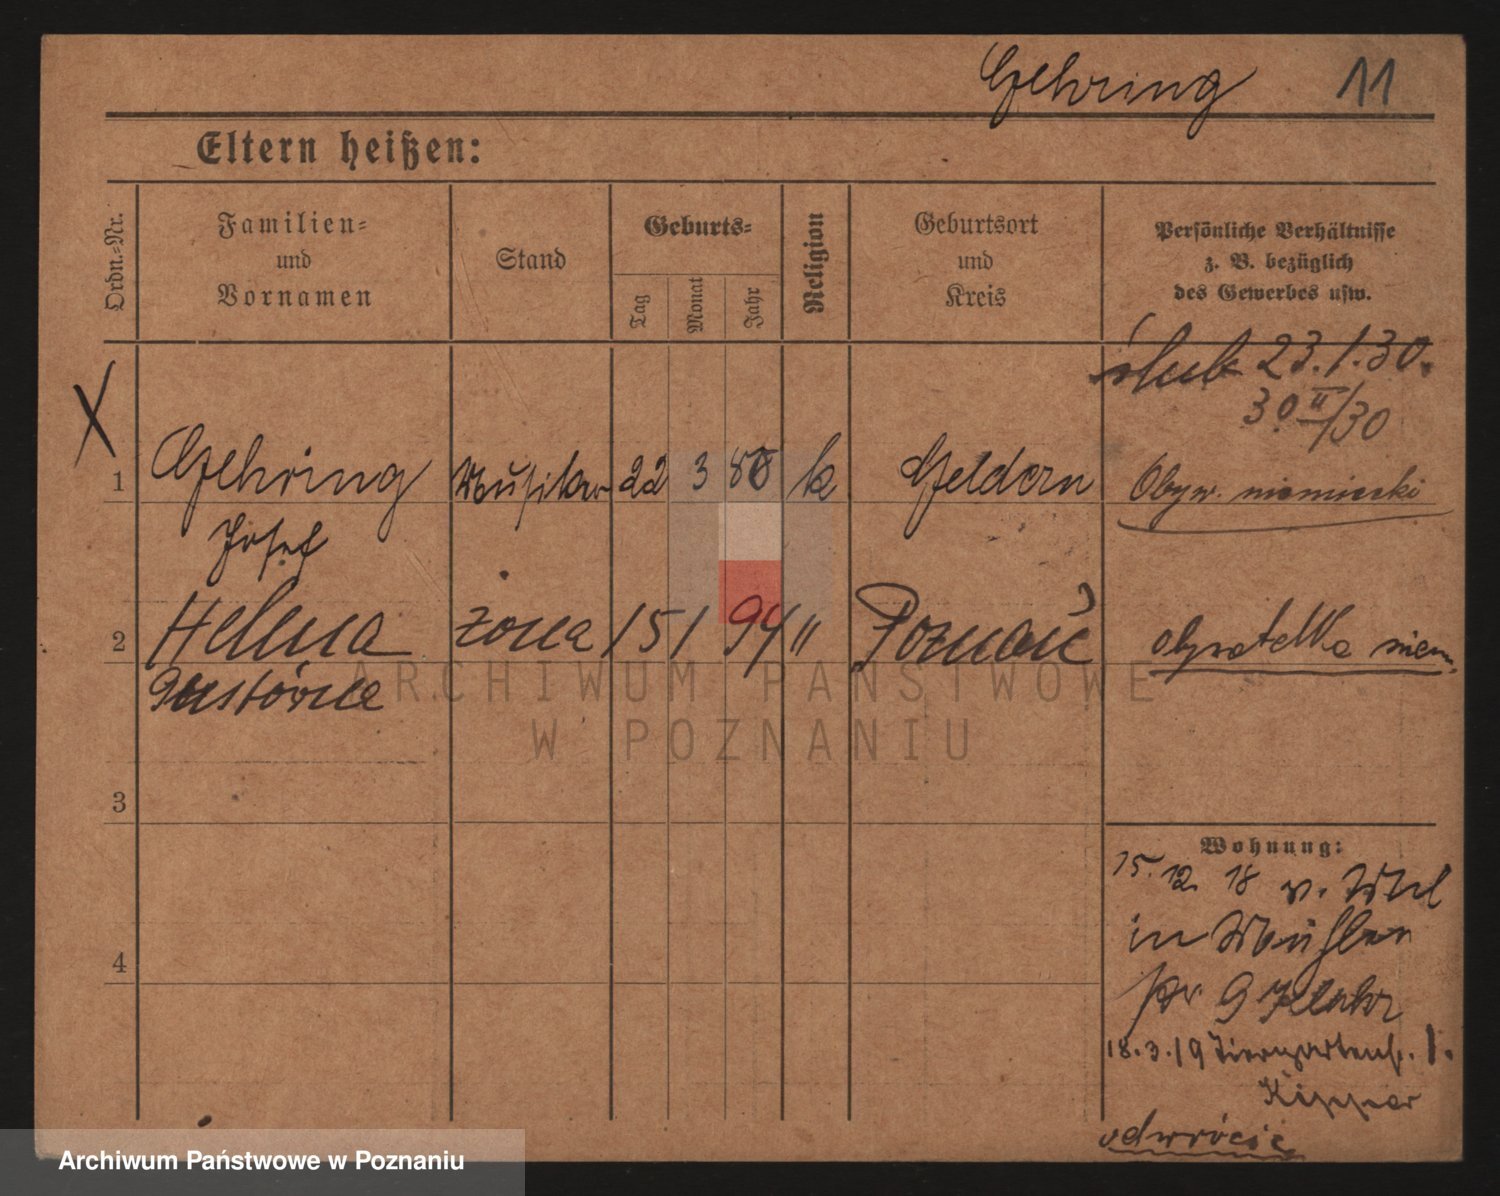 Gehring 11
Eltern heißen:
Ordn.-Nr.
Familien-
und
Vornamen
Stand
Geburts-
Tag
Monat
Jahr
Religion
Geburtsort
und
Kreis
Persönliche Verhältnisse
z. B. bezüglich
des Gewerbes usw.
ślub 23.1.30.
30 II/30
X
1 Gehring Musiker 22 3 88 k Geldern Obyw. niemiecki
Josef
2 Helena żona 15 1 94 " Poznań obywatelka niem.
Gustówna
ARCHIWUM PAŃSTWOWE
W POZNANIU
3
Wohnung:
15. 12. 18 v.
in
4
pr. 9
18.3.19 Tiergartenstr. 1.
odwrócić
Archiwum Państwowe w Poznaniu